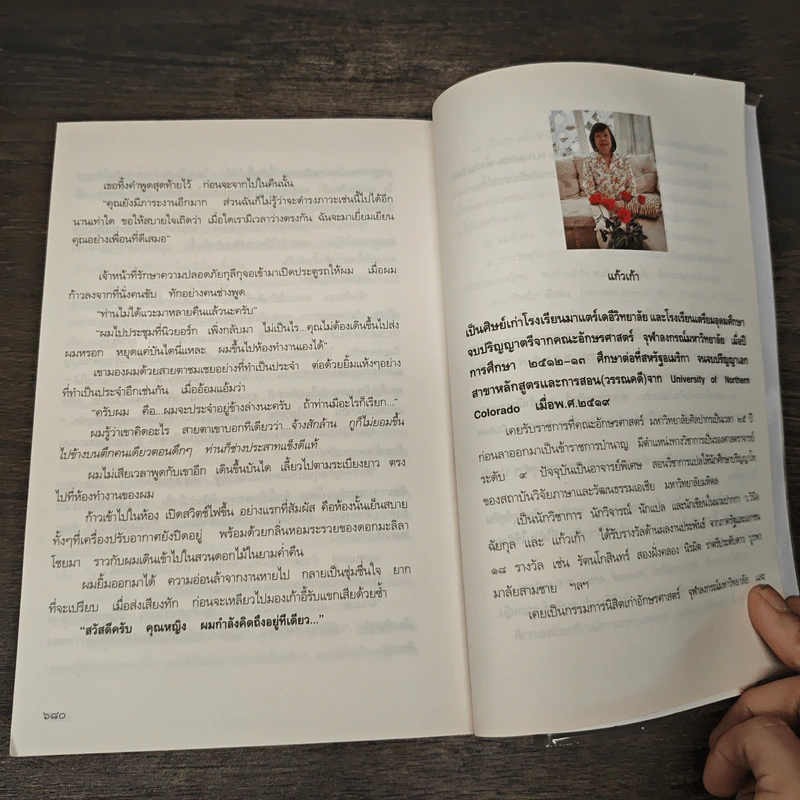 เธอทิ้งคำพูดสุดท้ายไว้ ก่อนจะจากไปในคืนนั้น
“คุณยังมีภาระงานอีกมาก ส่วนฉันก็ไม่รู้ว่าจะดำรงภาวะเช่นนี้ไปได้อีก
นานเท่าใด ขอให้สบายใจเถิดว่า เมื่อใดเรามีเวลาว่างตรงกัน ฉันจะมาเยี่ยมเยียน
คุณอย่างเพื่อนที่ดีเสมอ”
เจ้าหน้าที่รักษาความปลอดภัยกุลีกุจอเข้ามาเปิดประตูรถให้ผม เมื่อผม
ก้าวลงจากที่นั่งคนขับ ทักอย่างคนช่างพูด
“ท่านไม่ได้แวะมาหลายคืนแล้วนะครับ”
“ผมไปประชุมที่นิวยอร์ก เพิ่งกลับมา ไม่เป็นไร...คุณไม่ต้องเดินขึ้นไปส่ง
ผมหรอก หยุดแค่บันไดนี่แหละ ผมขึ้นไปห้องทำงานเองได้”
เขามองผมด้วยสายตาชมเชยอย่างที่ทำเป็นประจำ ต่อด้วยยิ้มแห้งๆอย่าง
ที่ทำเป็นประจำอีกเช่นกัน เมื่ออ้อมแอ้มว่า
“ครับผม คือ...ผมจะประจำอยู่ข้างล่างนะครับ ถ้าท่านมีอะไรก็เรียก...”
ผมรู้ว่าเขาคิดอะไร สายตาเขาบอกทีเดียวว่า...จ้างสักล้าน กูก็ไม่ยอมขึ้น
ไปข้างบนตึกคนเดียวตอนดึกๆ ท่านก็ช่างประสาทแข็งดีแท้
ผมไม่เสียเวลาพูดกับเขาอีก เดินขึ้นบันได เลี้ยวไปตามระเบียงยาว ตรง
ไปที่ห้องทำงานของผม
ก้าวเข้าไปในห้อง เปิดสวิตช์ไฟขึ้น อย่างแรกที่สัมผัส คือห้องนั้นเย็นสบาย
ทั้งๆที่เครื่องปรับอากาศยังปิดอยู่ พร้อมด้วยกลิ่นหอมระรวยของดอกมะลิลา
โชยมา ราวกับผมเดินเข้าไปในสวนดอกไม้ในยามค่ำคืน
ผมยิ้มออกมาได้ ความอ่อนล้าจากงานหายไป กลายเป็นชุ่มชื่นใจ ยาก
ที่จะเปรียบ เมื่อส่งเสียงทัก ก่อนจะเหลียวไปมองเก้าอี้รับแขกเสียด้วยซ้ำ
“สวัสดีครับ คุณหญิง ผมกำลังคิดถึงอยู่ทีเดียว...”
๖๘๐
แก้วเก้า
เป็นศิษย์เก่าโรงเรียนมาแตร์เดอีวิทยาลัย และโรงเรียนเตรียมอุดมศึกษา
จบปริญญาตรีจากคณะอักษรศาสตร์ จุฬาลงกรณ์มหาวิทยาลัย เมื่อปี
การศึกษา ๒๕๑๒-๑๓ ศึกษาต่อที่สหรัฐอเมริกา จนจบปริญญาเอก
สาขาหลักสูตรและการสอน(วรรณคดี)จาก University of Northern
Colorado เมื่อพ.ศ.๒๕๑๙
เคยรับราชการที่คณะอักษรศาสตร์ มหาวิทยาลัยศิลปากรเป็นเวลา ๒๕ ปี
ก่อนลาออกมาเป็นข้าราชการบำนาญ มีตำแหน่งทางวิชาการเป็นรองศาสตราจารย์
ระดับ ๙ ปัจจุบันเป็นอาจารย์พิเศษ สอนวิชาการแปลให้นักศึกษาปริญญาโท
ของสถาบันวิจัยภาษาและวัฒนธรรมเอเชีย มหาวิทยาลัยมหิดล
เป็นนักวิชาการ นักวิจารณ์ นักแปล และนักเขียนในนามปากกา ว.วินิจ
ฉัยกุล และ แก้วเก้า ได้รับรางวัลด้านผลงานประพันธ์ จากภาครัฐและเอกชน
๑๘ รางวัล เช่น รัตนโกสินทร์ สองฝั่งคลอง นิรมิต ราตรีประดับดาว บูรพา
มาลัยสามชาย ฯลฯ
เคยเป็นกรรมการนิสิตเก่าอักษรศาสตร์ จุฬาลงกรณ์มหาวิทยาลัย และ